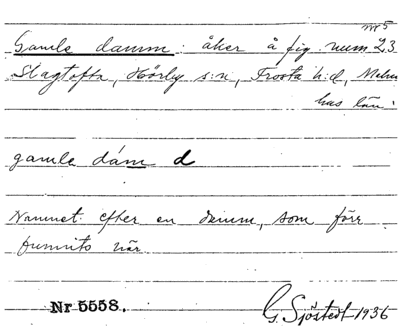 nr 5
Gamla damm : åker å fig. num 23
Slagtofta, Hörby s:n, Frosta h:d, Malmö
hus län.
gamla dám d
Namnet efter en damm, som förr
funnits här
Nr 5558. G. Sjöstedt 1936